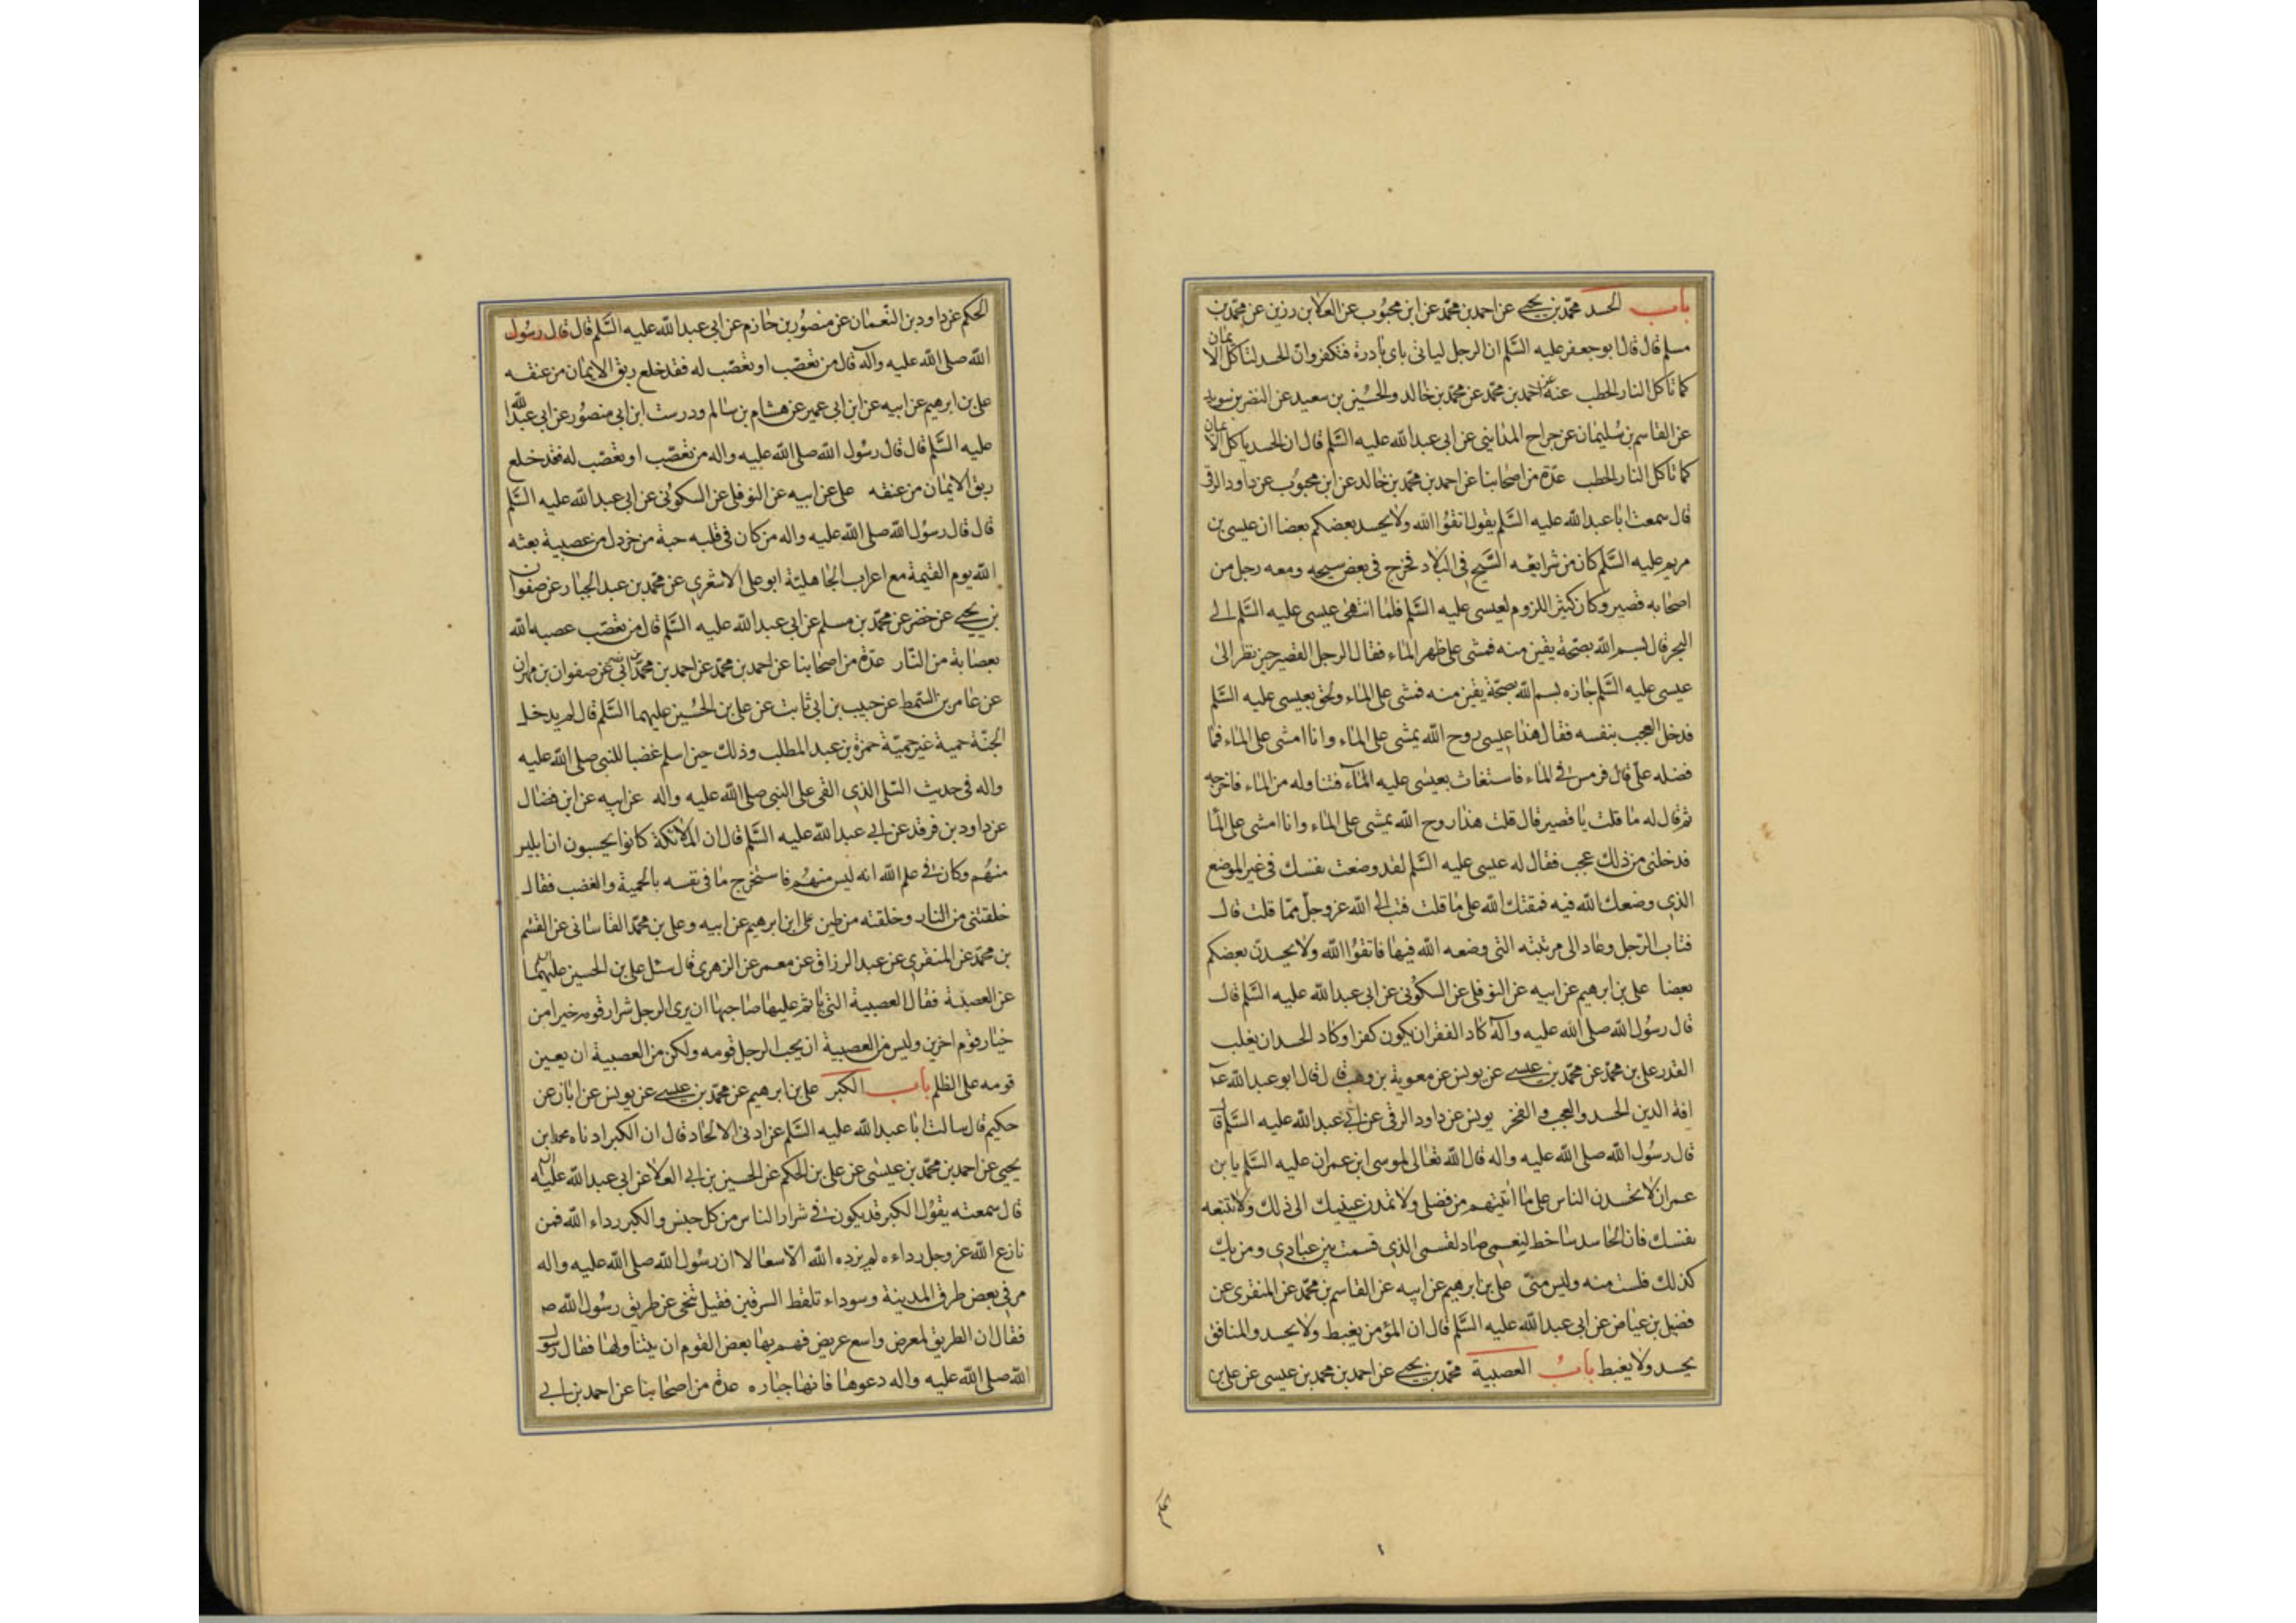 باب الحسد محمد بن يحيى عن احمد بن محمد عن ابن محبوب عن العلا بن رزين عن محمد بن
مسلم قال قال ابو جعفر عليه السلم ان الرجل لياتى باى بادرة فتكفر وان الحسد لتاكل الايمان
كما تاكل النار الحطب عنه عن احمد بن محمد عن محمد بن خالد والحسين بن سعيد عن النضر بن سويد
عن القاسم بن سليمان عن جراح المداينى عن ابى عبد الله عليه السلم قال ان الحسد ياكل الايمان
كما تاكل النار الحطب عدة من اصحابنا عن احمد بن محمد بن خالد عن ابن محبوب عن داود الرقى
قال سمعت ابا عبد الله عليه السلم يقول اتقوا الله ولا يحسد بعضكم بعضا ان عيسى بن
مريم عليه السلم كان من شرايعه السيح فى البلاد فخرج فى بعض سيحه ومعه رجل من
اصحابه قصير وكان كثير اللزوم لعيسى عليه السلم فلما انتهى عيسى عليه السلم الى
البحر قال بسم الله بصحة يقين منه فمشى على ظهر الماء فقال الرجل القصير حين نظر الى
عيسى عليه السلم جازه بسم الله بصحة يقين منه فمشى على الماء ولحق بعيسى عليه السلم
فدخل العجب بنفسه فقال هذا عيسى روح الله يمشى على الماء وانا امشى على الماء فما
فضله على قال فرمس فى الماء فاستغاث بعيسى عليه السلم فتناوله من الماء فاخرجه
ثم قال له ما قلت يا قصير قال قلت هذا روح الله يمشى على الماء وانا امشى على الما
فدخلنى من ذلك عجب فقال له عيسى عليه السلم لقد وضعت نفسك فى غير الموضع
الذى وضعك الله فيه فمقتك الله على ما قلت فتب الى الله عز وجل مما قلت قال
فتاب الرجل وعاد الى مرتبته التى وضعه الله فيها فاتقوا الله ولا يحسدن بعضكم
بعضا على بن ابرهيم عن ابيه عن النوفلى عن السكونى عن ابى عبد الله عليه السلم قال
قال رسول الله صلى الله عليه وآله كاد الفقر ان يكون كفرا وكاد الحسد ان يغلب
القدر على بن محمد عن محمد بن عيسى عن يونس عن معوية بن وهب قال قال ابو عبد الله ع
افة الدين الحسد والعجب والفخر يونس عن داود الرقى عن ابى عبد الله عليه السلم قال
قال رسول الله صلى الله عليه واله قال الله تعالى لموسى ابن عمران عليه السلم يا بن
عمران لا تحسدن الناس على ما اتيتهم من فضلى ولا تمدن عينيك الى ذلك ولا تتبعه
نفسك فان الحاسد ساخط لنعمى صاد لقسمى الذى قسمت بين عبادى ومن يك
كذلك فلست منه وليس منى على بن ابرهيم عن ابيه عن القاسم بن محمد عن المنقرى عن
فضيل بن عياض عن ابى عبد الله عليه السلم قال ان المؤمن يغبط ولا يحسد والمنافق
يحسد ولا يغبط باب العصبية محمد بن يحيى عن احمد بن محمد بن عيسى عن على بن
الحكم عن داود بن النعمان عن منصور بن حازم عن ابى عبد الله عليه السلم قال قال رسول
الله صلى الله عليه وآله قال من تعصب او تعصب له فقد خلع ربق الايمان من عنقه
على بن ابرهيم عن ابيه عن ابن ابى عمير عن هشام بن سالم ودرست ابن ابى منصور عن ابى عبد الله
عليه السلم قال قال رسول الله صلى الله عليه واله من تعصب او تعصب له فقد خلع
ربق الايمان من عنقه على عن ابيه عن النوفلى عن السكونى عن ابى عبد الله عليه السلم
قال قال رسول الله صلى الله عليه واله من كان فى قلبه حبة من خردل من عصبية بعثه
الله يوم القيمة مع اعراب الجاهلية ابو على الاشعرى عن محمد بن عبد الجبار عن صفوان
بن يحيى عن خضر عن محمد بن مسلم عن ابى عبد الله عليه السلم قال من تعصب عصبه الله
بعصابة من النار عدة من اصحابنا عن احمد بن محمد عن احمد بن محمد بن ابى نصر عن صفوان بن مهران
عن عامر بن السمط عن حبيب بن ابى ثابت عن على بن الحسين عليهما السلم قال لم يدخل
الجنة حمية غير حمية حمزة بن عبد المطلب وذلك حين اسلم غضبا للنبى صلى الله عليه
واله فى حديث السلى الذى القى على النبى صلى الله عليه واله عن ابيه عن ابن فضال
عن داود بن فرقد عن ابى عبد الله عليه السلم قال ان الملائكة كانوا يحسبون ان ابليس
منهم وكان فى علم الله انه ليس منهم فاستخرج ما فى نفسه بالحمية والغضب فقال
خلقتنى من النار وخلقته من طين على ابن ابرهيم عن ابيه وعلى بن محمد القاسانى عن القسم
بن محمد عن المنقرى عن عبد الرزاق عن معمر عن الزهرى قال سئل على بن الحسين عليهما
عن العصبية فقال العصبية التى ياثم عليها صاحبها ان يرى الرجل شرار قومه خيرا من
خيار قوم اخرين وليس من العصبية ان يحب الرجل قومه ولكن من العصبية ان يعين
قومه على الظلم باب الكبر على بن ابرهيم عن محمد بن عيسى عن يونس عن ابان عن
حكيم قال سالت ابا عبد الله عليه السلم عن ادنى الالحاد قال ان الكبر ادناه محمد بن
يحيى عن احمد بن محمد بن عيسى عن على بن الحكم عن الحسين بن ابى العلا عن ابى عبد الله عليه
قال سمعته يقول الكبر قد يكون فى شرار الناس من كل جنس والكبر رداء الله فمن
نازع الله عز وجل رداءه لم يزده الله الا سفالا ان رسول الله صلى الله عليه واله
مر فى بعض طرق المدينة وسوداء تلقط السرقين فقيل تنحى عن طريق رسول الله ص
فقال ان الطريق لمعرض واسع عريض فهم بها بعض القوم ان يتناولها فقال رسول
الله صلى الله عليه واله دعوها فانها جباره عدة من اصحابنا عن احمد بن ابى